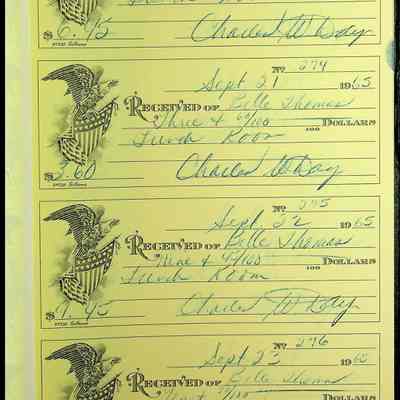 $6.45 Charles W Day
No 274
Sept 21 1965
RECEIVED OF Belle Thomas
Three & 60/100 DOLLARS
Lunch Room 100
$3.60 Charles W Day
No 275
Sept 22 1965
RECEIVED OF Belle Thomas
Nine & 45/100 DOLLARS
Lunch Room 100
$9.45 Charles W Day
No 276
Sept 23 1965
RECEIVED OF Belle Thomas
/100 DOLLARS